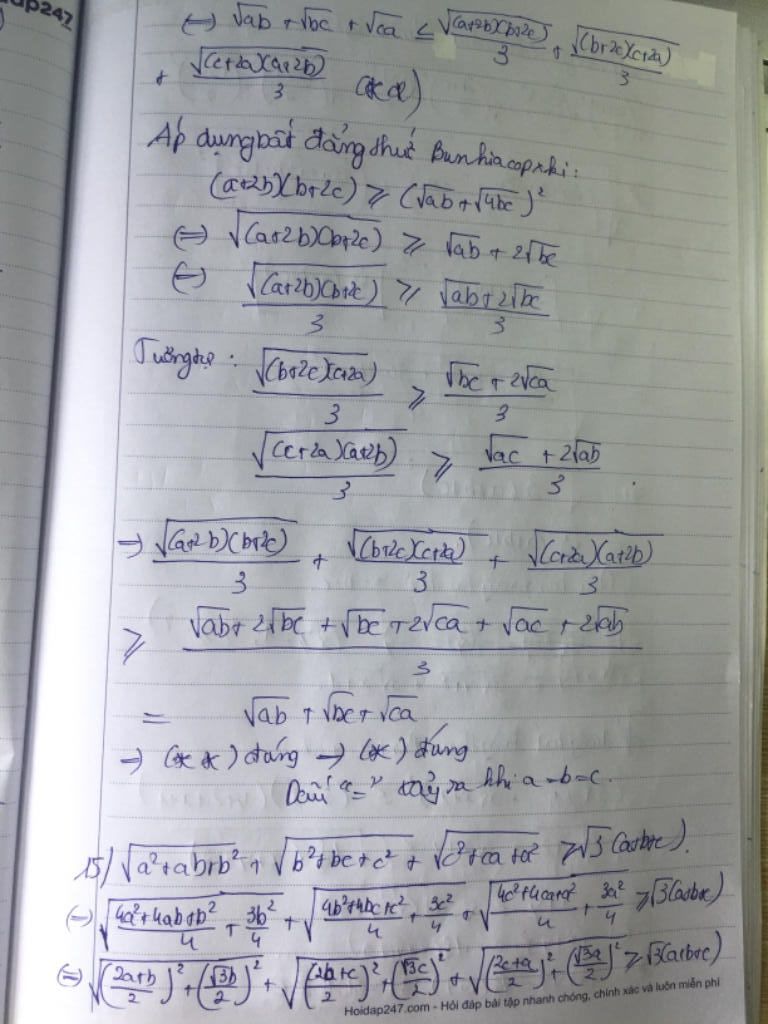 dap247
(=) √ab + √bc + √ca ≤ √((a+2b)(b+2c))/3 + √((b+2c)(c+2a))/3
+ √((c+2a)(a+2b))/3 (**)
Áp dụng bất đẳng thức Bunhiacopxki:
(a+2b)(b+2c) ≥ (√ab + √4bc)²
(=) √((a+2b)(b+2c)) ≥ √ab + 2√bc
(=) √((a+2b)(b+2c))/3 ≥ (√ab + 2√bc)/3
Tương tự: √((b+2c)(c+2a))/3 ≥ (√bc + 2√ca)/3
√((c+2a)(a+2b))/3 ≥ (√ac + 2√ab)/3.
→ √((a+2b)(b+2c))/3 + √((b+2c)(c+2a))/3 + √((c+2a)(a+2b))/3
≥ (√ab + 2√bc + √bc + 2√ca + √ac + 2√ab)/3
= √ab + √bc + √ca
→ (**) đúng → (*) đúng
Dấu "=" xảy ra khi a=b=c.
15) √(a²+ab+b²) + √(b²+bc+c²) + √(c²+ca+a²) ≥ √3(a+b+c).
(=) √((4a²+4ab+b²)/4 + 3b²/4) + √((4b²+4bc+c²)/4 + 3c²/4) + √((4c²+4ca+a²)/4 + 3a²/4) ≥ √3(a+b+c)
(=) √(((2a+b)/2)² + (√3b/2)²) + √(((2b+c)/2)² + (√3c/2)²) + √(((2c+a)/2)² + (√3a/2)²) ≥ √3(a+b+c)
Hoidap247.com - Hỏi đáp bài tập nhanh chóng, chính xác và luôn miễn phí